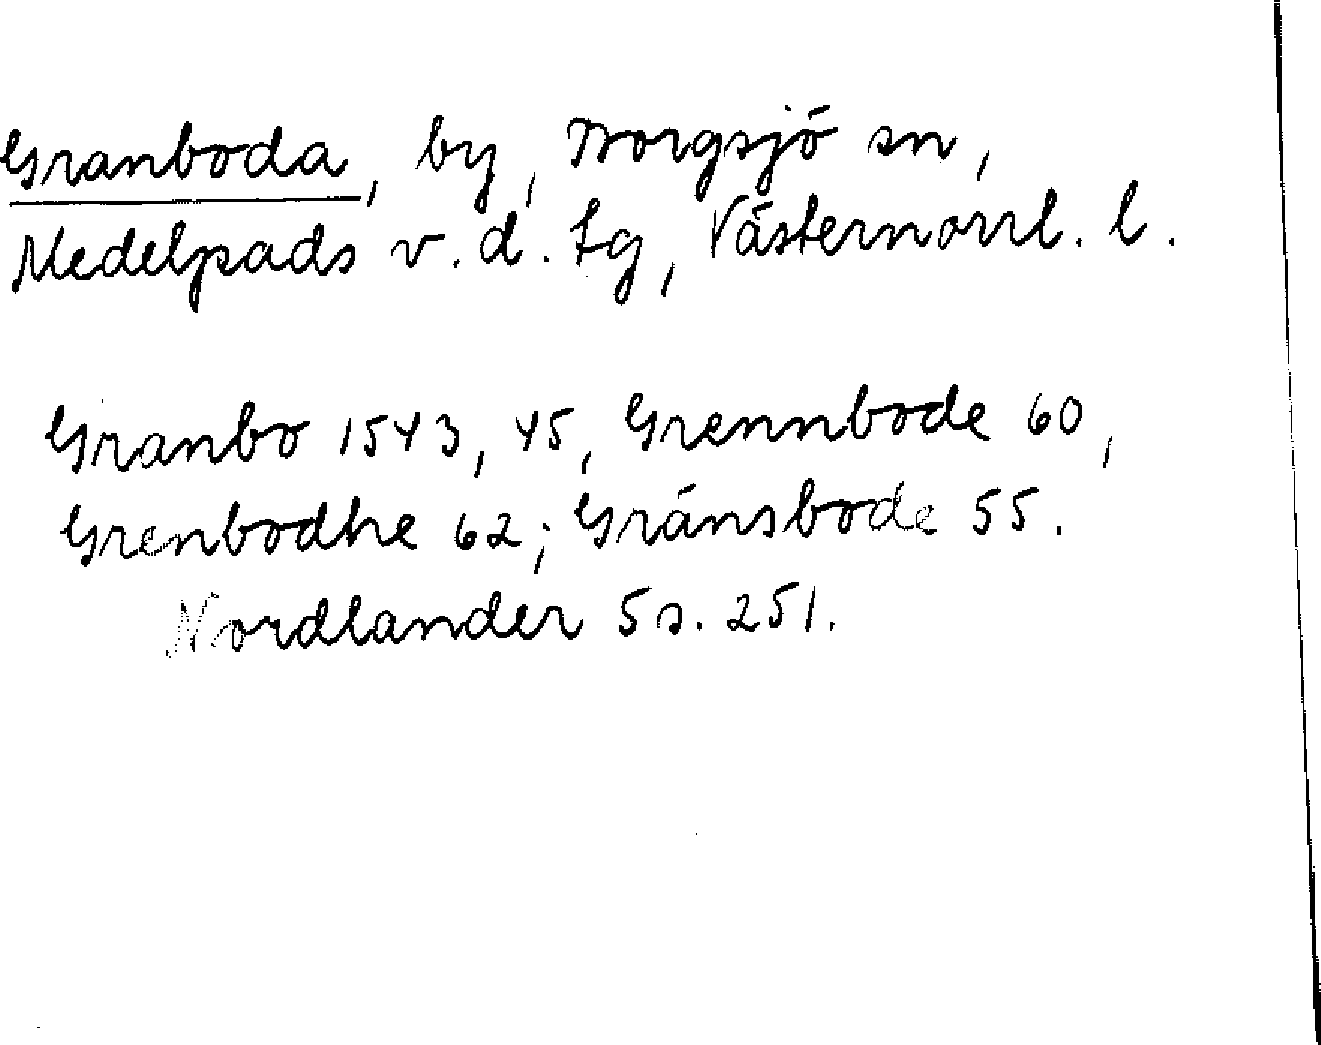 Granboda, by, Borgsjö sn,
Medelpads v. d. tg, Västernorrl. l.
Granbo 1543, 45, Grennbode 60,
Grenbodhe 62; Gränsbode 55.
Nordlander 5 s. 251.